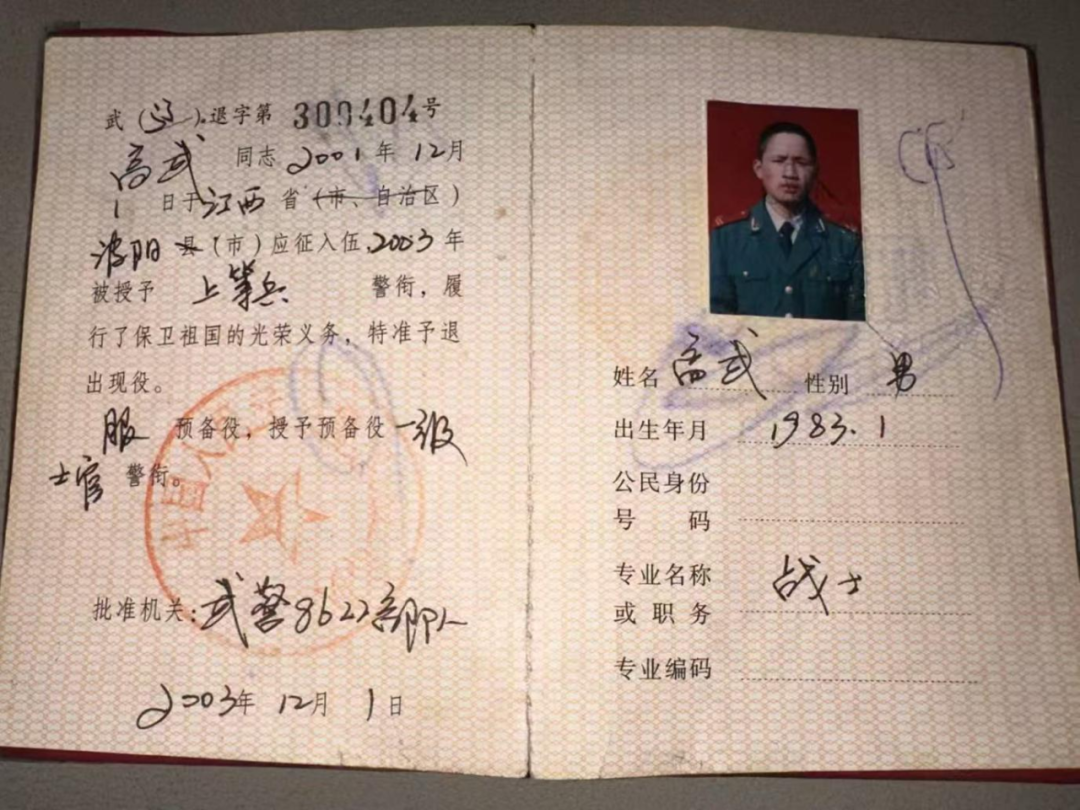 武(辽)退字第300404号
高武 同志2001年12月
1日于江西省(市、自治区)
波阳县(市)应征入伍,2003年
被授予 上等兵 警衔，履
行了保卫祖国的光荣义务，特准予退
出现役。
服 预备役，授予预备役一级
士官 警衔。
批准机关：武警8622部队
2003年12月1日
姓名 高武 性别 男
出生年月 1983.1
公民身份
号码
专业名称 战士
或职务
专业编码